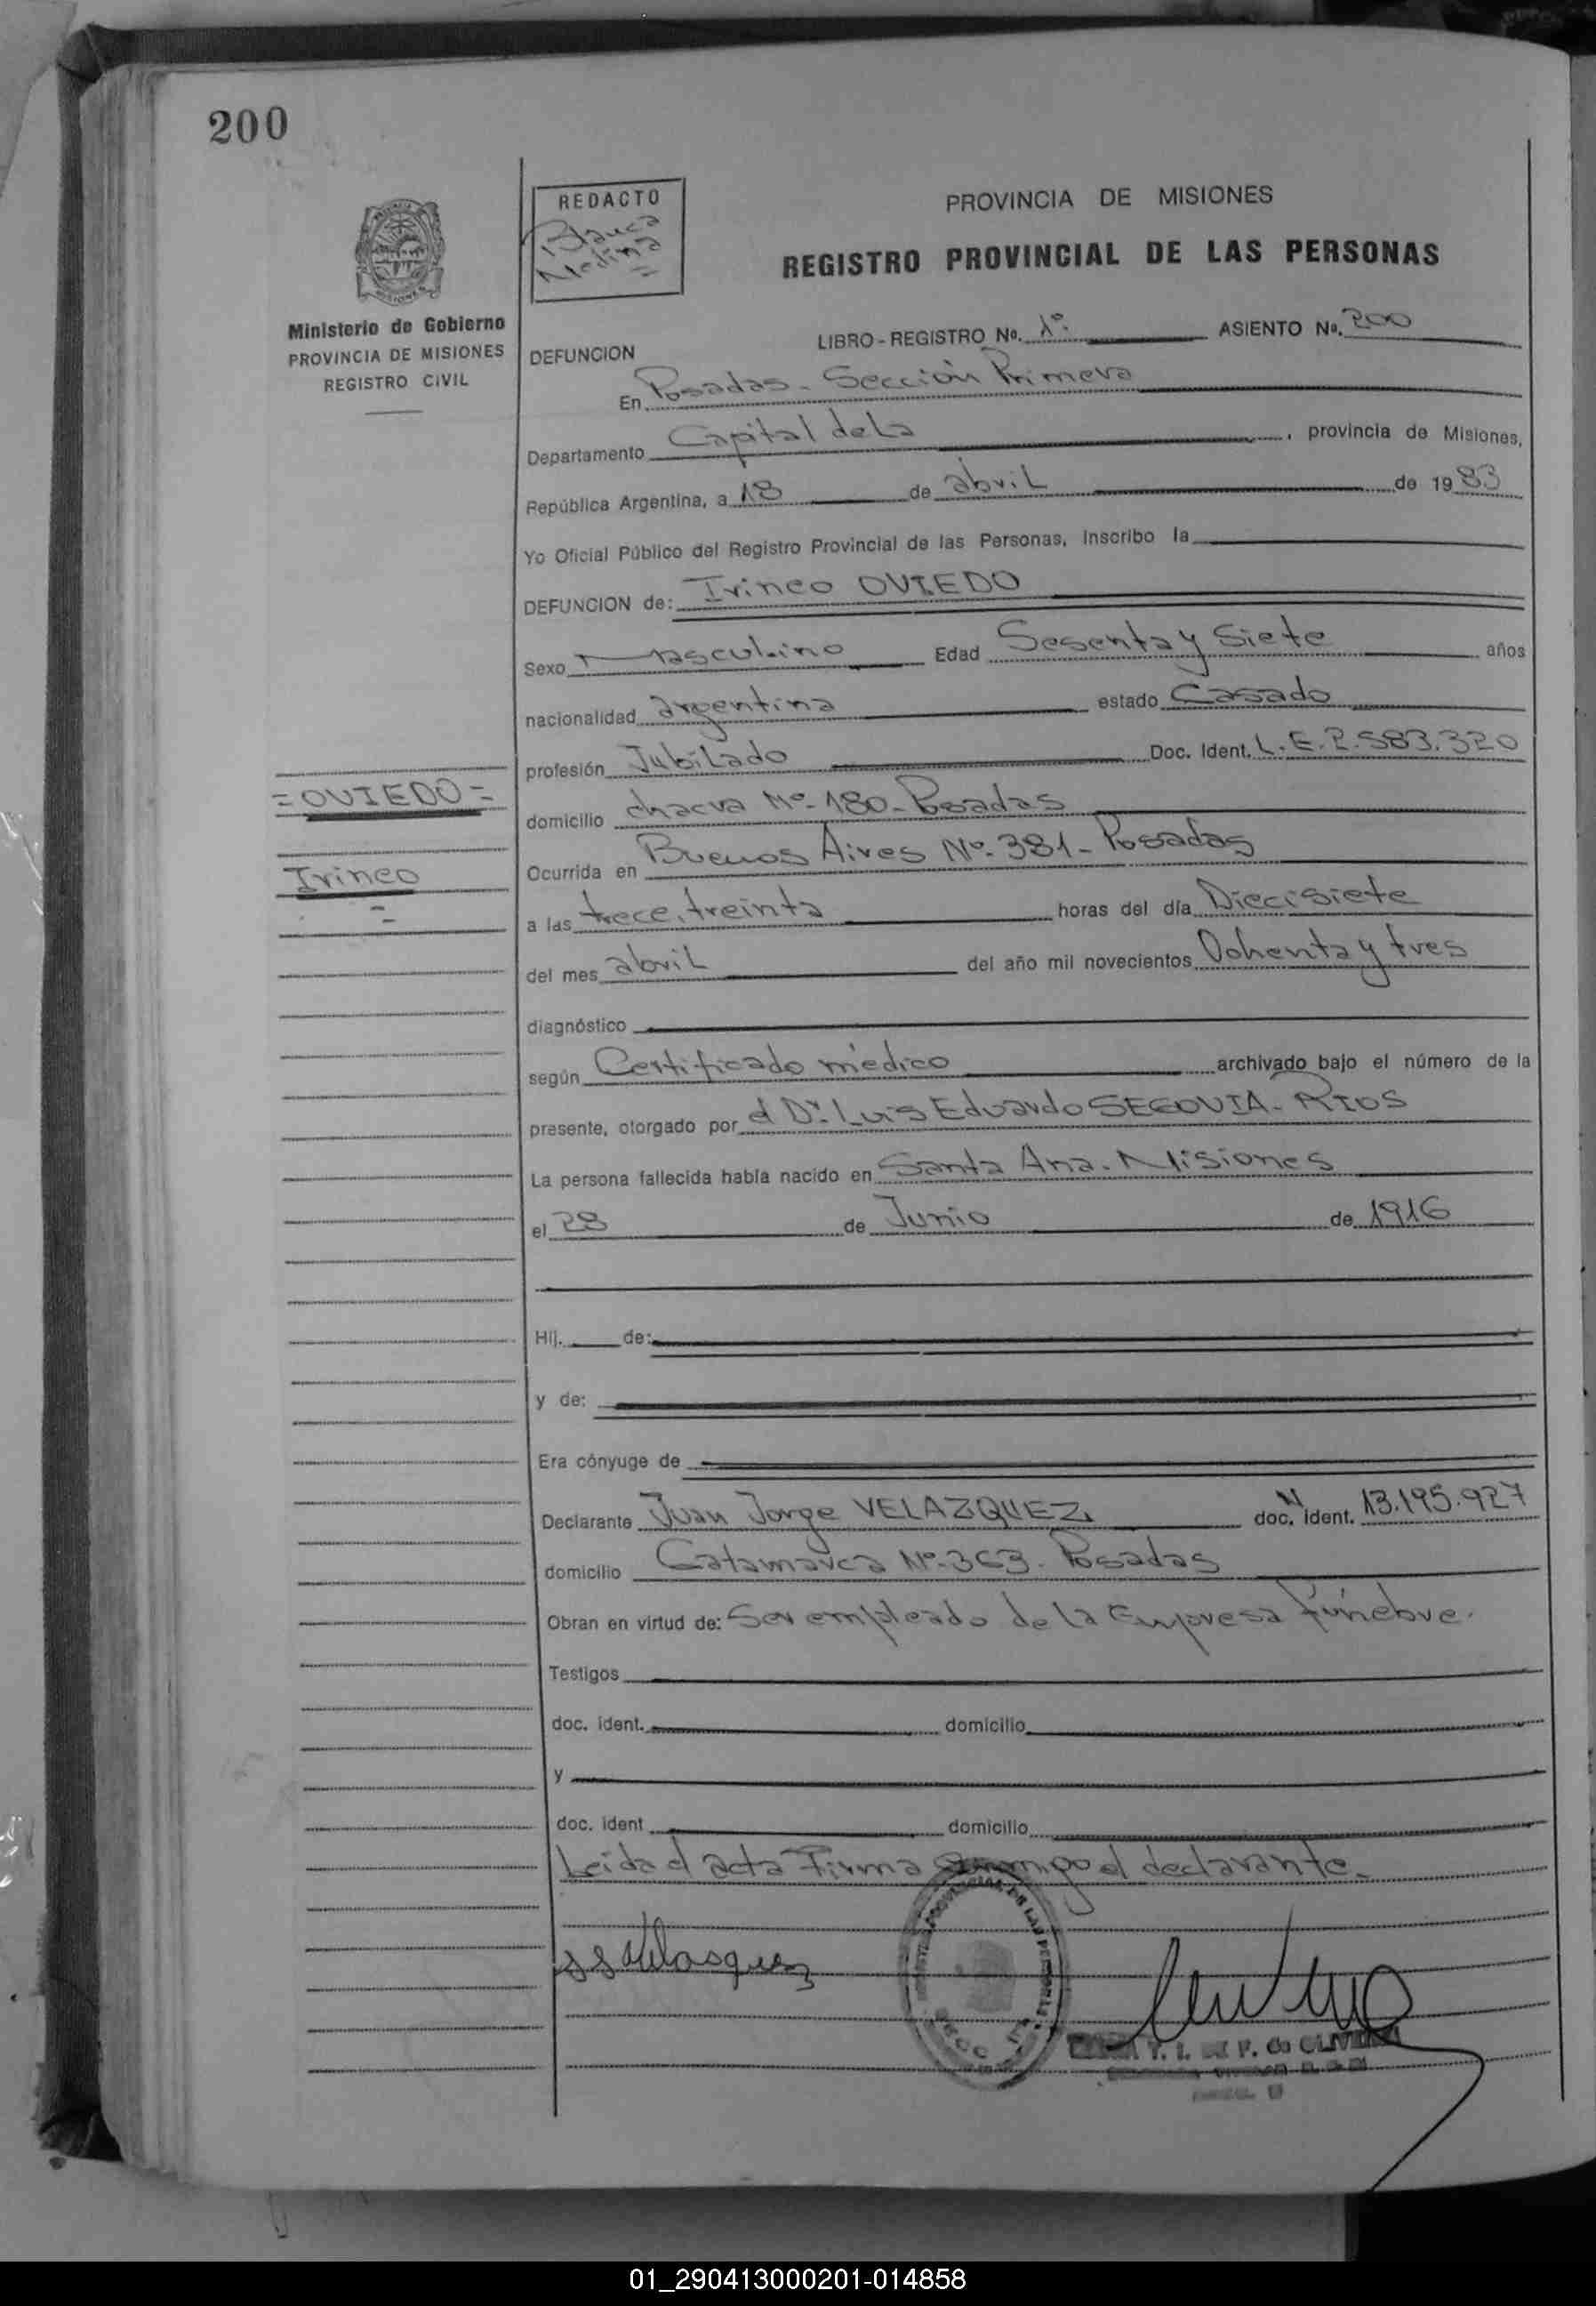 200
REDACTO
Blanca
Medina
PROVINCIA DE MISIONES
REGISTRO PROVINCIAL DE LAS PERSONAS
Ministerio de Gobierno
PROVINCIA DE MISIONES
REGISTRO CIVIL
DEFUNCION
LIBRO - REGISTRO No. 1º. ASIENTO No. 200
En Posadas - Sección Primera
Departamento Capital de La , provincia de Misiones,
República Argentina, a 18 de abril de 1983
Yo Oficial Público del Registro Provincial de las Personas, Inscribo la
DEFUNCION de: Irineo OVIEDO
Sexo Masculino Edad Sesenta y Siete años
nacionalidad argentina estado Casado
profesión Jubilado Doc. Ident. L.E. 2.583.320
=OVIEDO=
domicilio chacra Nº-180- Posadas
Irineo
Ocurrida en Buenos Aires Nº-381- Posadas
a las trece, treinta horas del día Diecisiete
del mes abril del año mil novecientos Ochenta y tres
diagnóstico
según Certificado médico archivado bajo el número de la
presente, otorgado por el Dr. Luis Eduardo SEGOVIA - RIOS
La persona fallecida había nacido en Santa Ana - Misiones
el 28 de Junio de 1916
Hij. de:
y de:
Era cónyuge de
Declarante Juan Jorge VELAZQUEZ doc. N ident. 13.195.927
domicilio Catamarca Nº-363- Posadas
Obran en virtud de: Ser empleado de la Empresa fúnebre.
Testigos
doc. ident. domicilio
y
doc. ident domicilio
Leida el acta Firma conmigo el declarante.
JJVelasquez
T. I. P. de OLIVERA
01_290413000201-014858